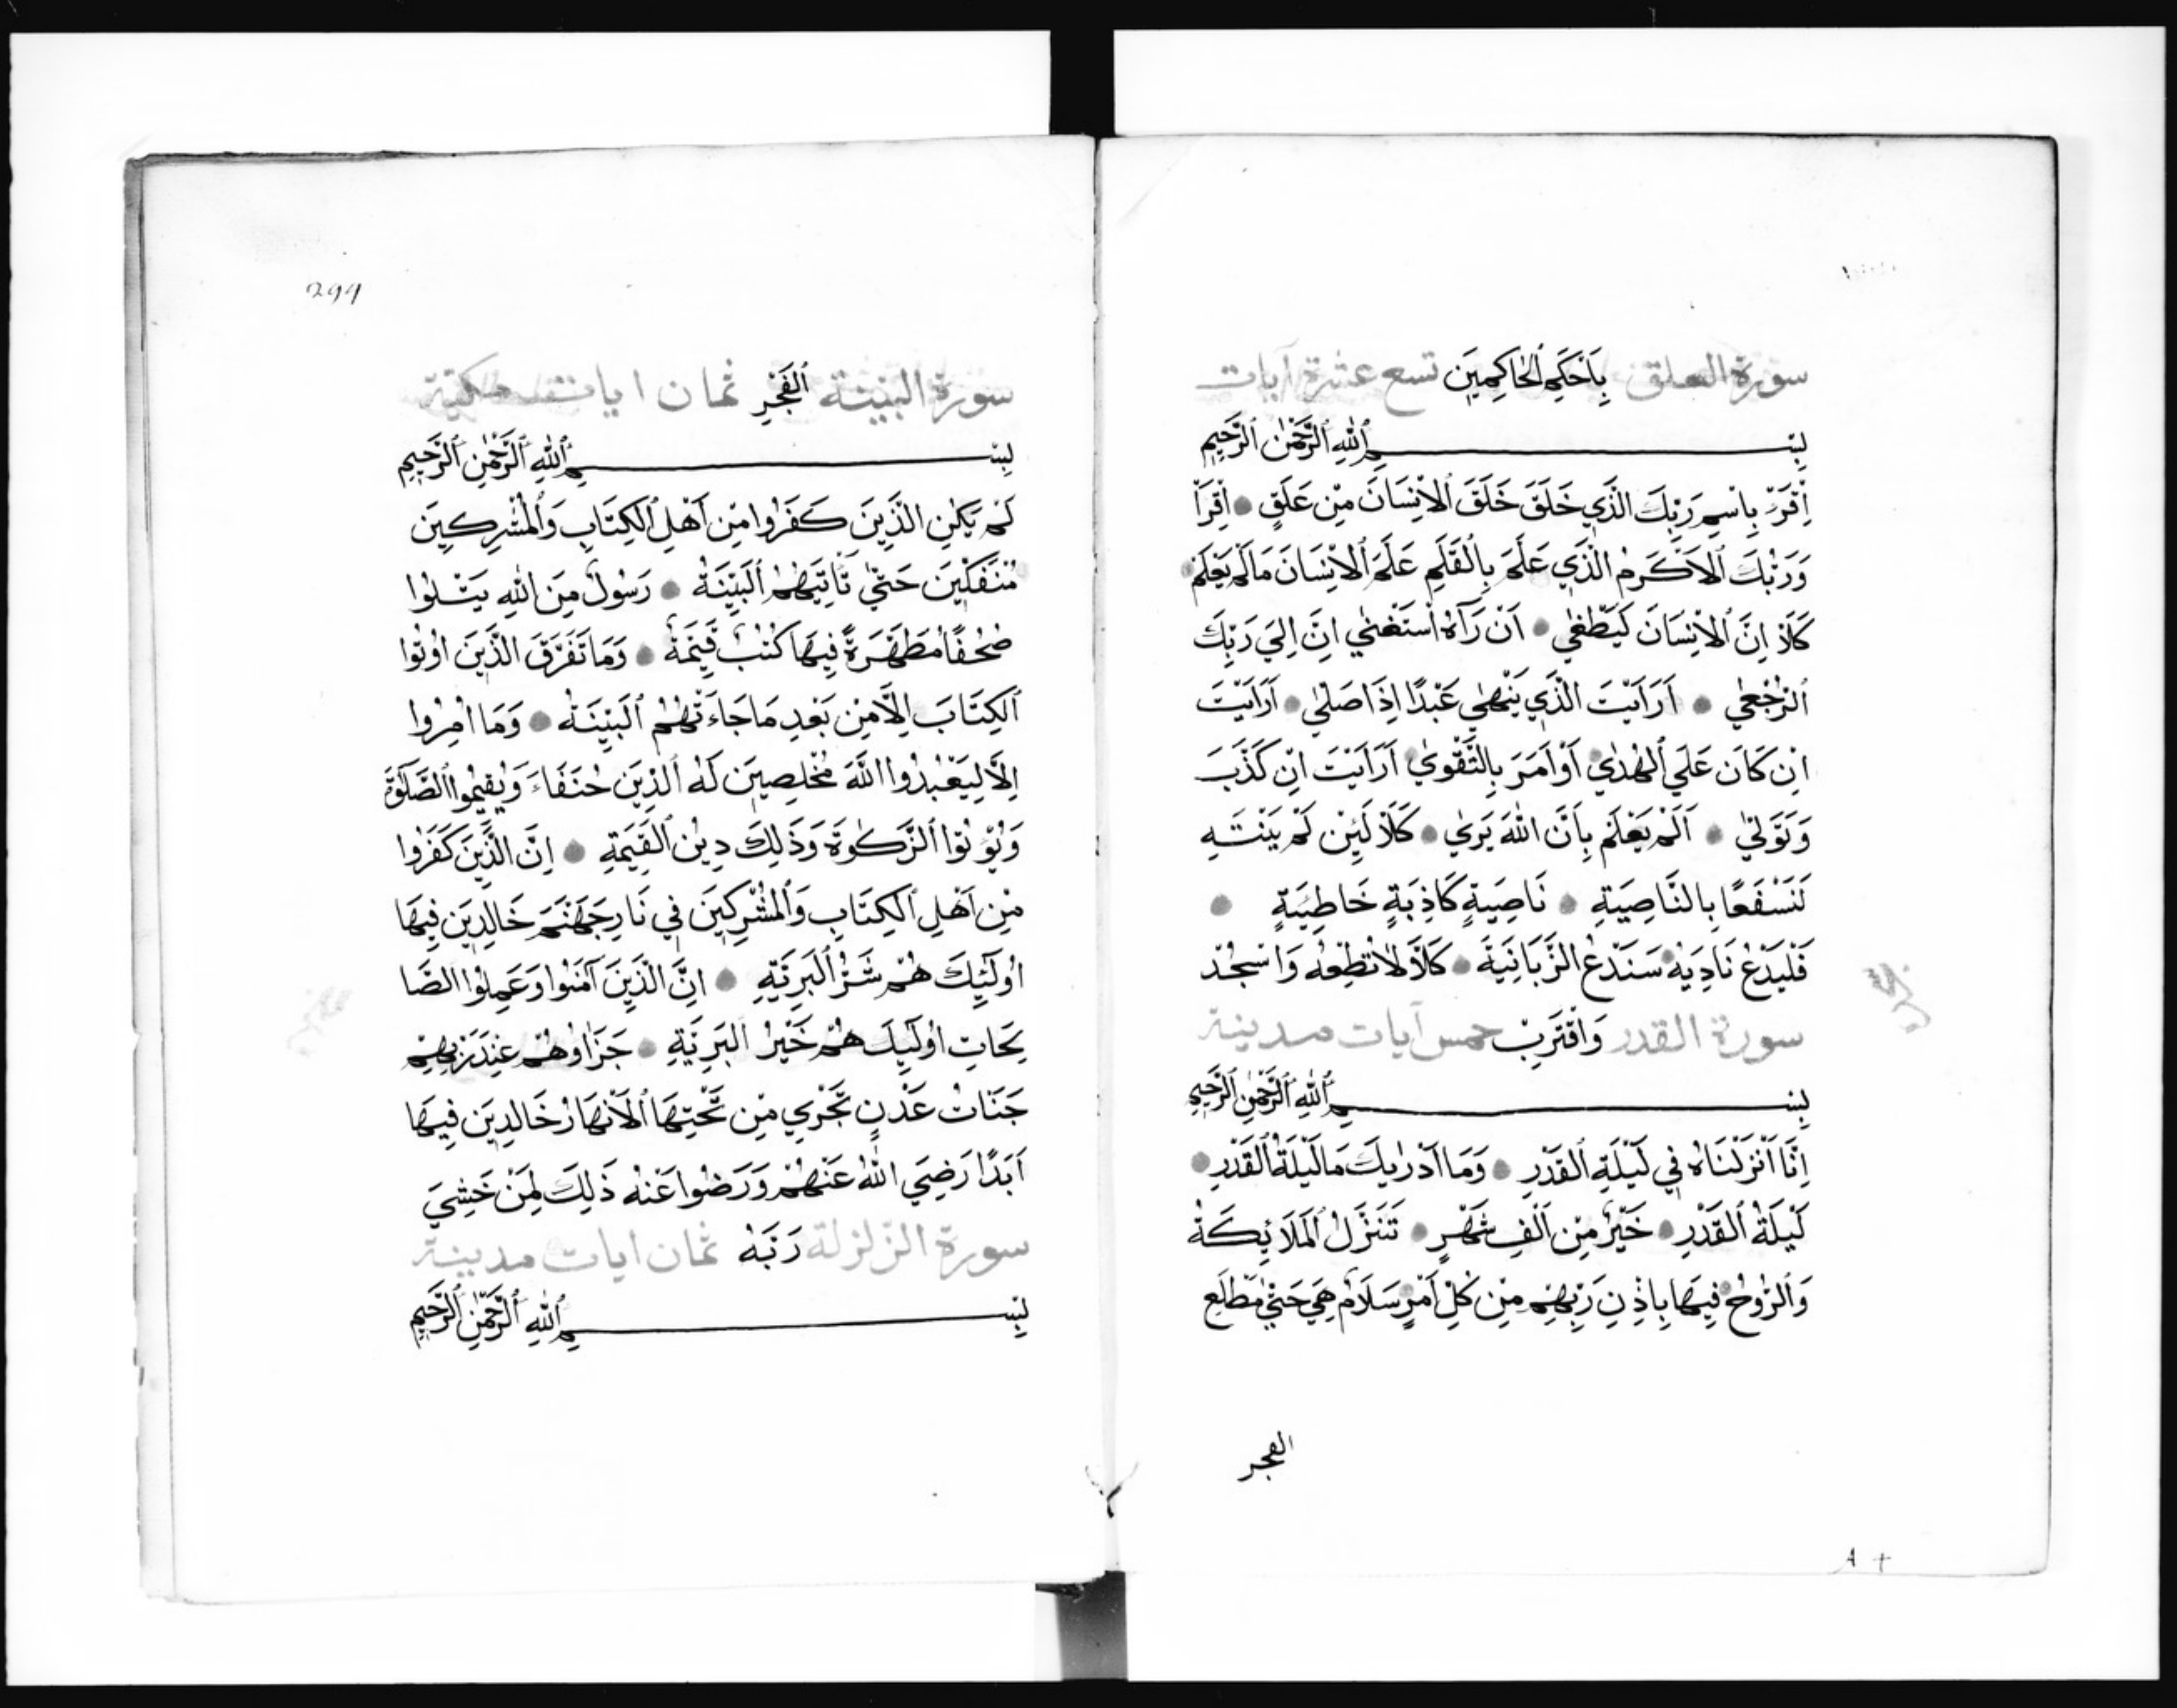 سورة العلق بِاَحْكَمِ ٱلْحَاكِمِينَ تسع عشرة آيات
بِسْمِ ٱللهِ ٱلرَّحْمٰنِ ٱلرَّحِيمِ
اِقْرَأْ بِاسْمِ رَبِّكَ الَّذِي خَلَقَ خَلَقَ ٱلْاِنْسَانَ مِنْ عَلَقٍ اِقْرَأْ
وَرَبُّكَ ٱلْاَكْرَمُ الَّذِي عَلَّمَ بِالْقَلَمِ عَلَّمَ ٱلْاِنْسَانَ مَا لَمْ يَعْلَمْ
كَلَّا اِنَّ ٱلْاِنْسَانَ لَيَطْغٰي اَنْ رَآهُ اسْتَغْنٰي اِنَّ اِلَي رَبِّكَ
ٱلرُّجْعٰي اَرَاَيْتَ الَّذِي يَنْهٰي عَبْدًا اِذَا صَلّٰي اَرَاَيْتَ
اِنْ كَانَ عَلَي ٱلْهُدٰي اَوْ اَمَرَ بِالتَّقْوٰي اَرَاَيْتَ اِنْ كَذَّبَ
وَتَوَلّٰي اَلَمْ يَعْلَمْ بِاَنَّ اللهَ يَرٰي كَلَّا لَئِنْ لَمْ يَنْتَهِ
لَنَسْفَعًا بِالنَّاصِيَةِ نَاصِيَةٍ كَاذِبَةٍ خَاطِئَةٍ
فَلْيَدْعُ نَادِيَهُ سَنَدْعُ الزَّبَانِيَةَ كَلَّا لَا تُطِعْهُ وَاسْجُدْ
سورة القدر وَاقْتَرِبْ خمس آيات مدينة
بِسْمِ ٱللهِ ٱلرَّحْمٰنِ ٱلرَّحِيمِ
اِنَّا اَنْزَلْنَاهُ فِي لَيْلَةِ ٱلْقَدْرِ وَمَا اَدْرٰيكَ مَا لَيْلَةُ ٱلْقَدْرِ
لَيْلَةُ ٱلْقَدْرِ خَيْرٌ مِنْ اَلْفِ شَهْرٍ تَنَزَّلُ ٱلْمَلَائِكَةُ
وَٱلرُّوحُ فِيهَا بِاِذْنِ رَبِّهِمْ مِنْ كُلِّ اَمْرٍ سَلَامٌ هِيَ حَتّٰي مَطْلَعِ
الفجر
299
سورة البينة ٱلْفَجْرِ ثمان ايات مكية
بِسْمِ ٱللهِ ٱلرَّحْمٰنِ ٱلرَّحِيمِ
لَمْ يَكُنِ الَّذِينَ كَفَرُوا مِنْ اَهْلِ ٱلْكِتَابِ وَٱلْمُشْرِكِينَ
مُنْفَكِّينَ حَتّٰي تَأْتِيَهُمُ ٱلْبَيِّنَةُ رَسُولٌ مِنَ اللهِ يَتْلُوا
صُحُفًا مُطَهَّرَةً فِيهَا كُتُبٌ قَيِّمَةٌ وَمَا تَفَرَّقَ الَّذِينَ اُوتُوا
ٱلْكِتَابَ اِلَّا مِنْ بَعْدِ مَا جَاءَتْهُمُ ٱلْبَيِّنَةُ وَمَا اُمِرُوا
اِلَّا لِيَعْبُدُوا اللّٰهَ مُخْلِصِينَ لَهُ ٱلدِّينَ حُنَفَاءَ وَيُقِيمُوا الصَّلٰوةَ
وَيُؤْتُوا ٱلزَّكٰوةَ وَذٰلِكَ دِينُ ٱلْقَيِّمَةِ اِنَّ الَّذِينَ كَفَرُوا
مِنْ اَهْلِ ٱلْكِتَابِ وَٱلْمُشْرِكِينَ فِي نَارِ جَهَنَّمَ خَالِدِينَ فِيهَا
اُولٰئِكَ هُمْ شَرُّ ٱلْبَرِيَّةِ اِنَّ الَّذِينَ آمَنُوا وَعَمِلُوا الصَّا
لِحَاتِ اُولٰئِكَ هُمْ خَيْرُ ٱلْبَرِيَّةِ جَزَاؤُهُمْ عِنْدَ رَبِّهِمْ
جَنَّاتُ عَدْنٍ تَجْرِي مِنْ تَحْتِهَا ٱلْاَنْهَارُ خَالِدِينَ فِيهَا
اَبَدًا رَضِيَ اللهُ عَنْهُمْ وَرَضُوا عَنْهُ ذٰلِكَ لِمَنْ خَشِيَ
سورة الزلزلة رَبَّهُ ثمان ايات مدينة
بِسْمِ ٱللهِ ٱلرَّحْمٰنِ ٱلرَّحِيمِ